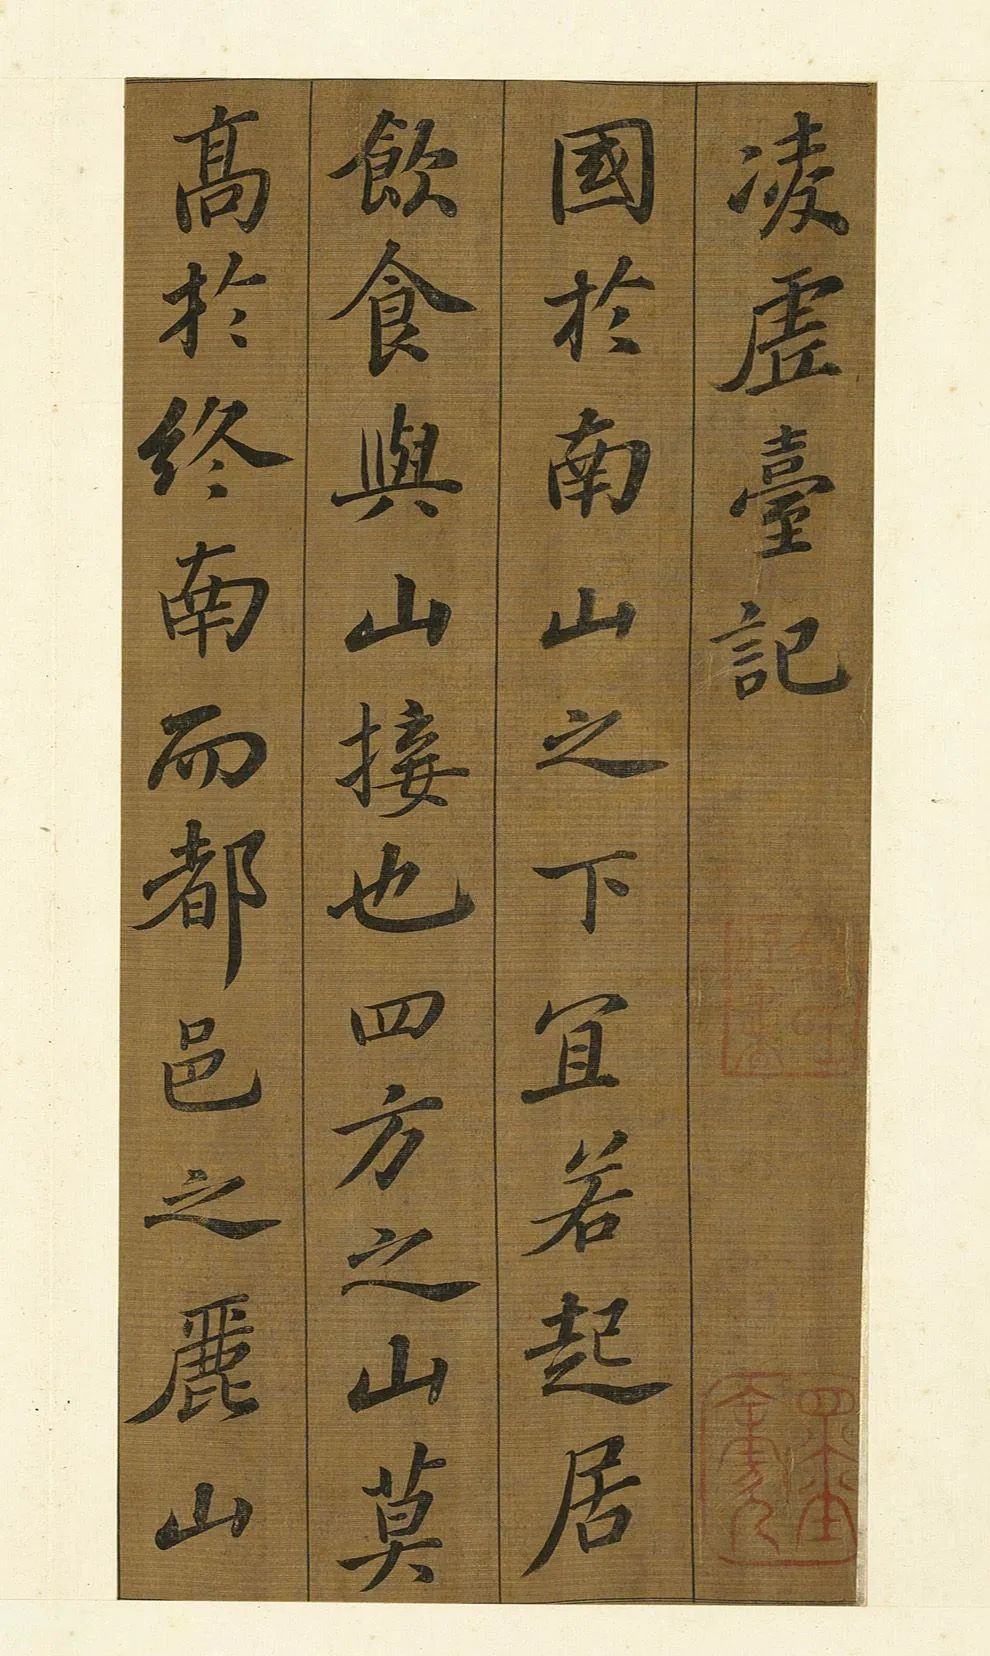 凌虛臺記
國於南山之下宜若起居
飲食與山接也四方之山莫
髙於終南而都邑之麗山